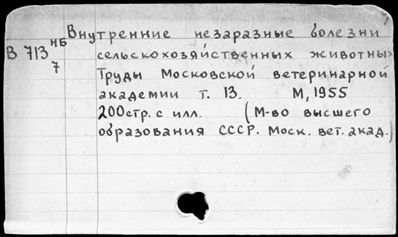 Внутренние незаразные болезни
В 713 НБ сельскохозяйственных животных
7
Труды Московской ветеринарной
академии т. 13. М, 1955
200стр. с илл. (М-во высшего
образования СССР. Моск. вет. акад.)